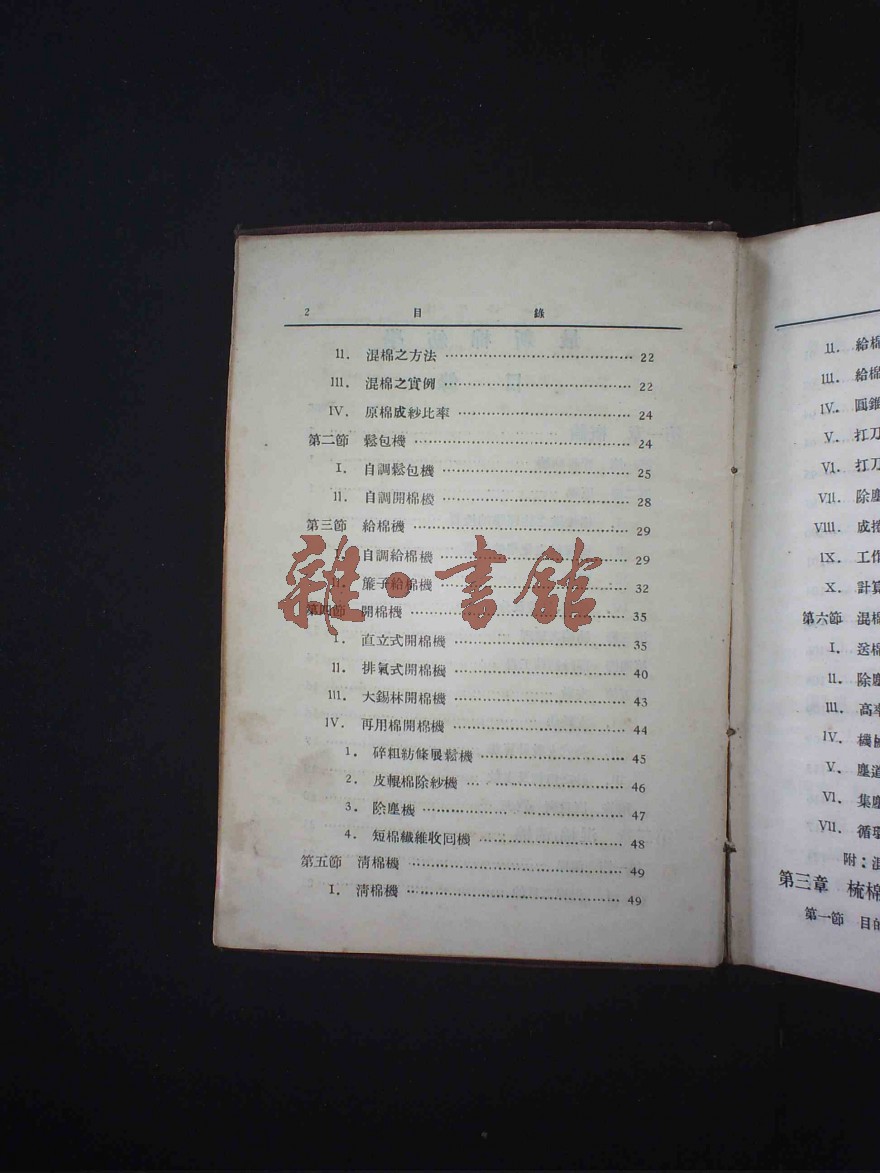 2 目錄
II. 混棉之方法 ……………………………… 22
III. 混棉之實例 ……………………………… 22
IV. 原棉成紗比率 ……………………………… 24
第二節 鬆包機 ……………………………… 24
I. 自調鬆包機 ……………………………… 25
II. 自調開棉機 ……………………………… 28
第三節 給棉機 ……………………………… 29
I. 自調給棉機 ……………………………… 29
II. 簾子給棉機 ……………………………… 32
第四節 開棉機 ……………………………… 35
I. 直立式開棉機 ……………………………… 35
II. 排氣式開棉機 ……………………………… 40
III. 大錫林開棉機 ……………………………… 43
IV. 再用棉開棉機 ……………………………… 44
1. 碎粗紡條展鬆機 ……………………………… 45
2. 皮輥棉除紗機 ……………………………… 46
3. 除塵機 ……………………………… 47
4. 短棉纖維收回機 ……………………………… 48
第五節 淸棉機 ……………………………… 49
I. 淸棉機 ……………………………… 49
雜·書館
II. 給棉
III. 給棉
IV. 圓錐
V. 打刀
VI. 打刀
VII. 除塵
VIII. 成捲
IX. 工作
X. 計算
第六節 混棉
I. 送棉
II. 除塵
III. 高率
IV. 機械
V. 塵道
VI. 集塵
VII. 循環
附：混
第三章 梳棉
第一節 目的